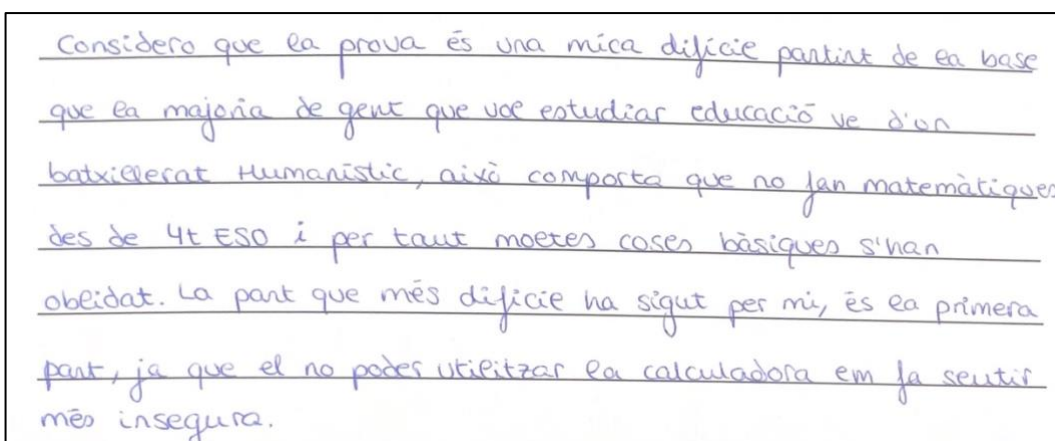 Considero que la prova és una mica difícil partint de la base
que la majoria de gent que vol estudiar educació ve d'un
batxillerat Humanístic, això comporta que no fan matemàtiques
des de 4t ESO i per tant moltes coses bàsiques s'han
oblidat. La part que més difícil ha sigut per mi, és la primera
part, ja que el no poder utilitzar la calculadora em fa sentir
més insegura.